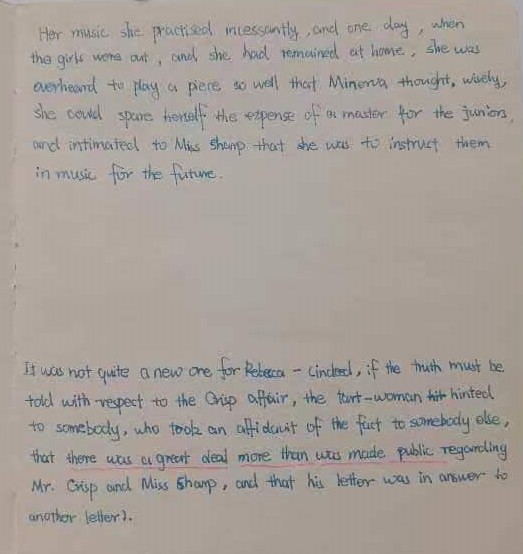 Her music she practised incessantly, and one day, when
the girls were out, and she had remained at home, she was
overheard to play a piece so well that Minerva thought, wisely,
she could spare herself the expense of a master for the juniors,
and intimated to Miss Sharp that she was to instruct them
in music for the future.
It was not quite a new one for Rebecca - (indeed, if the truth must be
told with respect to the Crisp affair, the tart-woman hit hinted
to somebody, who took an affidavit of the fact to somebody else,
that there was a great deal more than was made public regarding
Mr. Crisp and Miss Sharp, and that his letter was in answer to
another letter).